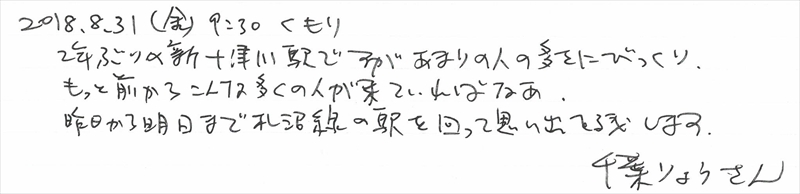 2018.8.31(金) 9:30 くもり
2年ぶりの新十津川駅ですがあまりの人の多さにびっくり.
もっと前からこんな多くの人が来ていればなあ.
昨日から明日まで札沼線の駅を回って思い出を残します.
千葉りょうさん